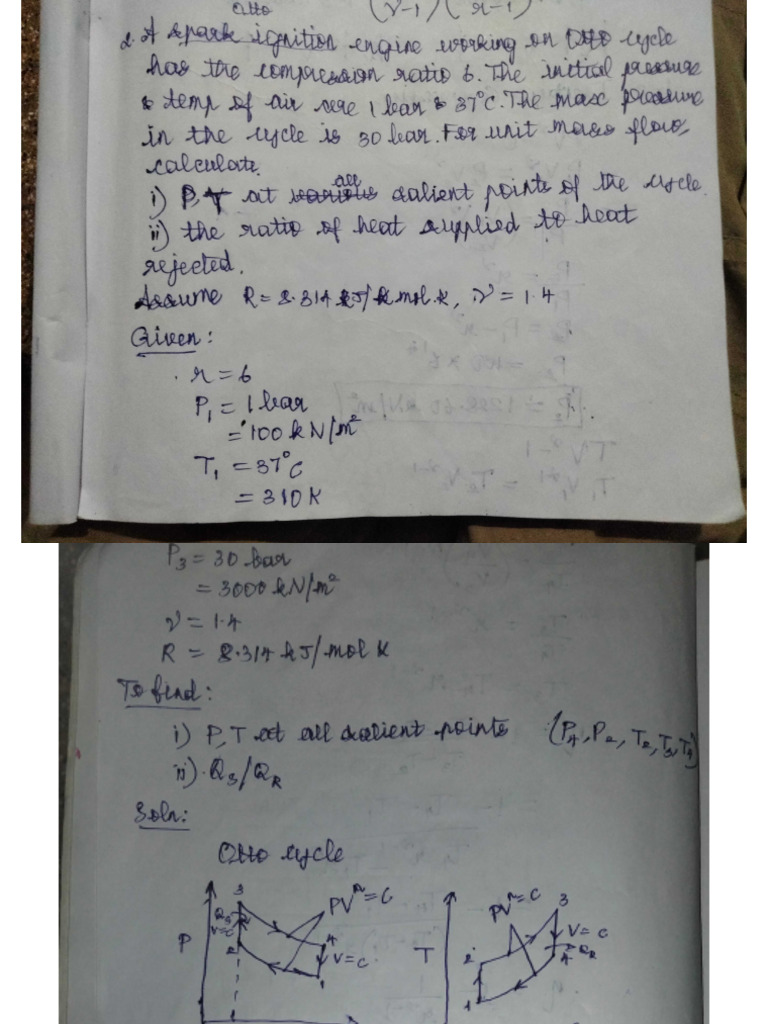 Otto (γ-1) (r-1)
2. A spark ignition engine working on Otto cycle
has the compression ratio 6. The initial pressure
& temp of air were 1 bar & 37°C. The max pressure
in the cycle is 30 bar. For unit mass flow,
calculate.
i) P T at various all salient points of the cycle.
ii) the ratio of heat supplied to heat
rejected.
Assume R = 8.314 kJ/kmol.k, γ = 1.4
Given:
r = 6
P₁ = 1 bar
= 100 kN/m²
T₁ = 37°C
= 310 K
P₃ = 30 bar
= 3000 kN/m²
γ = 1.4
R = 8.314 kJ/mol K
To find:
i) P, T at all salient points (P₄, P₂, T₂, T₃, T₄)
ii) Qs/QR
Soln:
Otto cycle
3 PVᵞ = C PVᵞ = C 3
Qs
V=C V = C
P 2 4 V = C T 2 4 QR
1 1